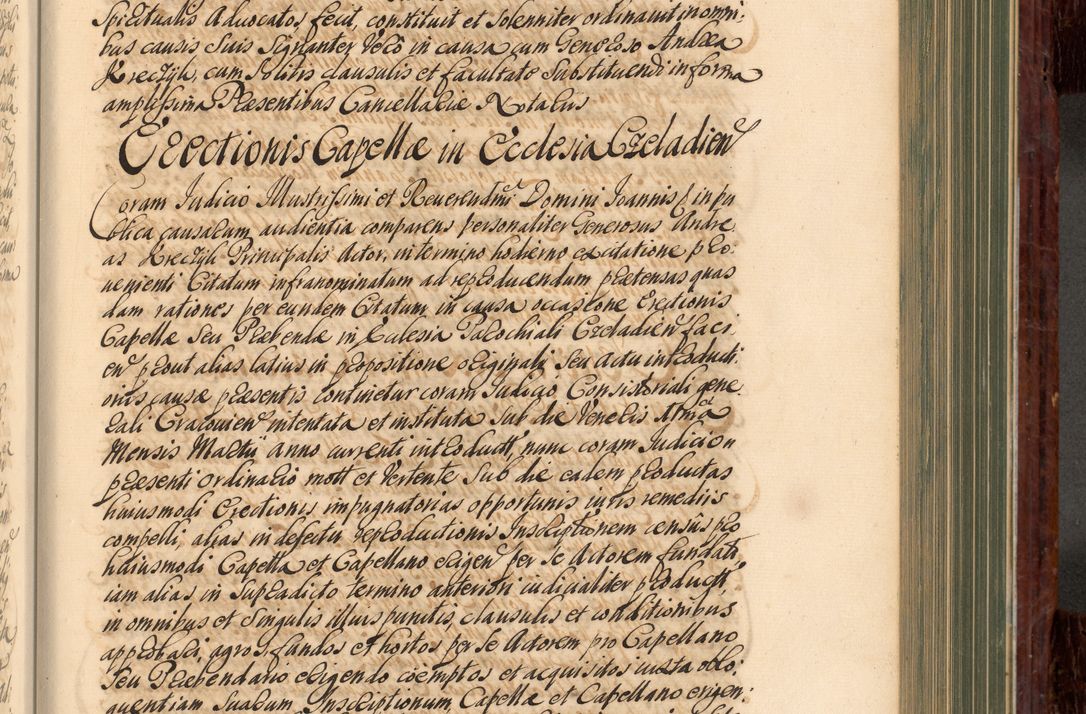 Spiritualis Advocatos fecit, constituit et solenniter ordinavit in omni-
bus causis suis signanter vero in causa cum Generoso Andrea
Kreczyk, cum solitis clausulis et facultate substituendi in forma
amplissima Præsentibus Cancellariæ Notariis
Erectionis Capellæ in Ecclesia Czeladien
Coram Judicio Illustrissimi et Reverendmi Domini Joannis in pu
blica causarum audientia comparens personaliter Generosus Andre-
as Kreczyk Principalis Actor, in termino hodierno ex citatione pro-
venienti Citatum infranominatum ad reproducendum prætensas quas
dam rationes per eundem Citatum in causa occasione Erectionis
Capellæ seu Præbendæ in Ecclesia Parochiali Czeladien faci
en prout alias latius in propositione originali seu actu introducti
onis causæ præsentis continetur coram Judicio Consistoriali gene-
rali Cracovien intentata et instituta sub die Veneris
Mensis Martii anno currenti introduct, nunc coram Judicio
præsenti ordinario mott et vertente sub die eadem productas
huiusmodi Erectionis impugnatorias opportunis iuris remediis
compelli, alias in defectu reproductionis Inscriptionem census pro
huiusmodi Capella et Capellano erigen per se Actorem fundati
iam alias in supradicto termino anteriori iudicialiter product,
in omnibus et singulis illius punctis, clausulis et conditionibus
approbari, agros, fundos et hortos per se Actorem pro Capellano
seu Præbendario erigendo coemptos et acquisitos iuxta oblo-
quentiam suarum Inscriptionum Capellæ et Capellano erigen: